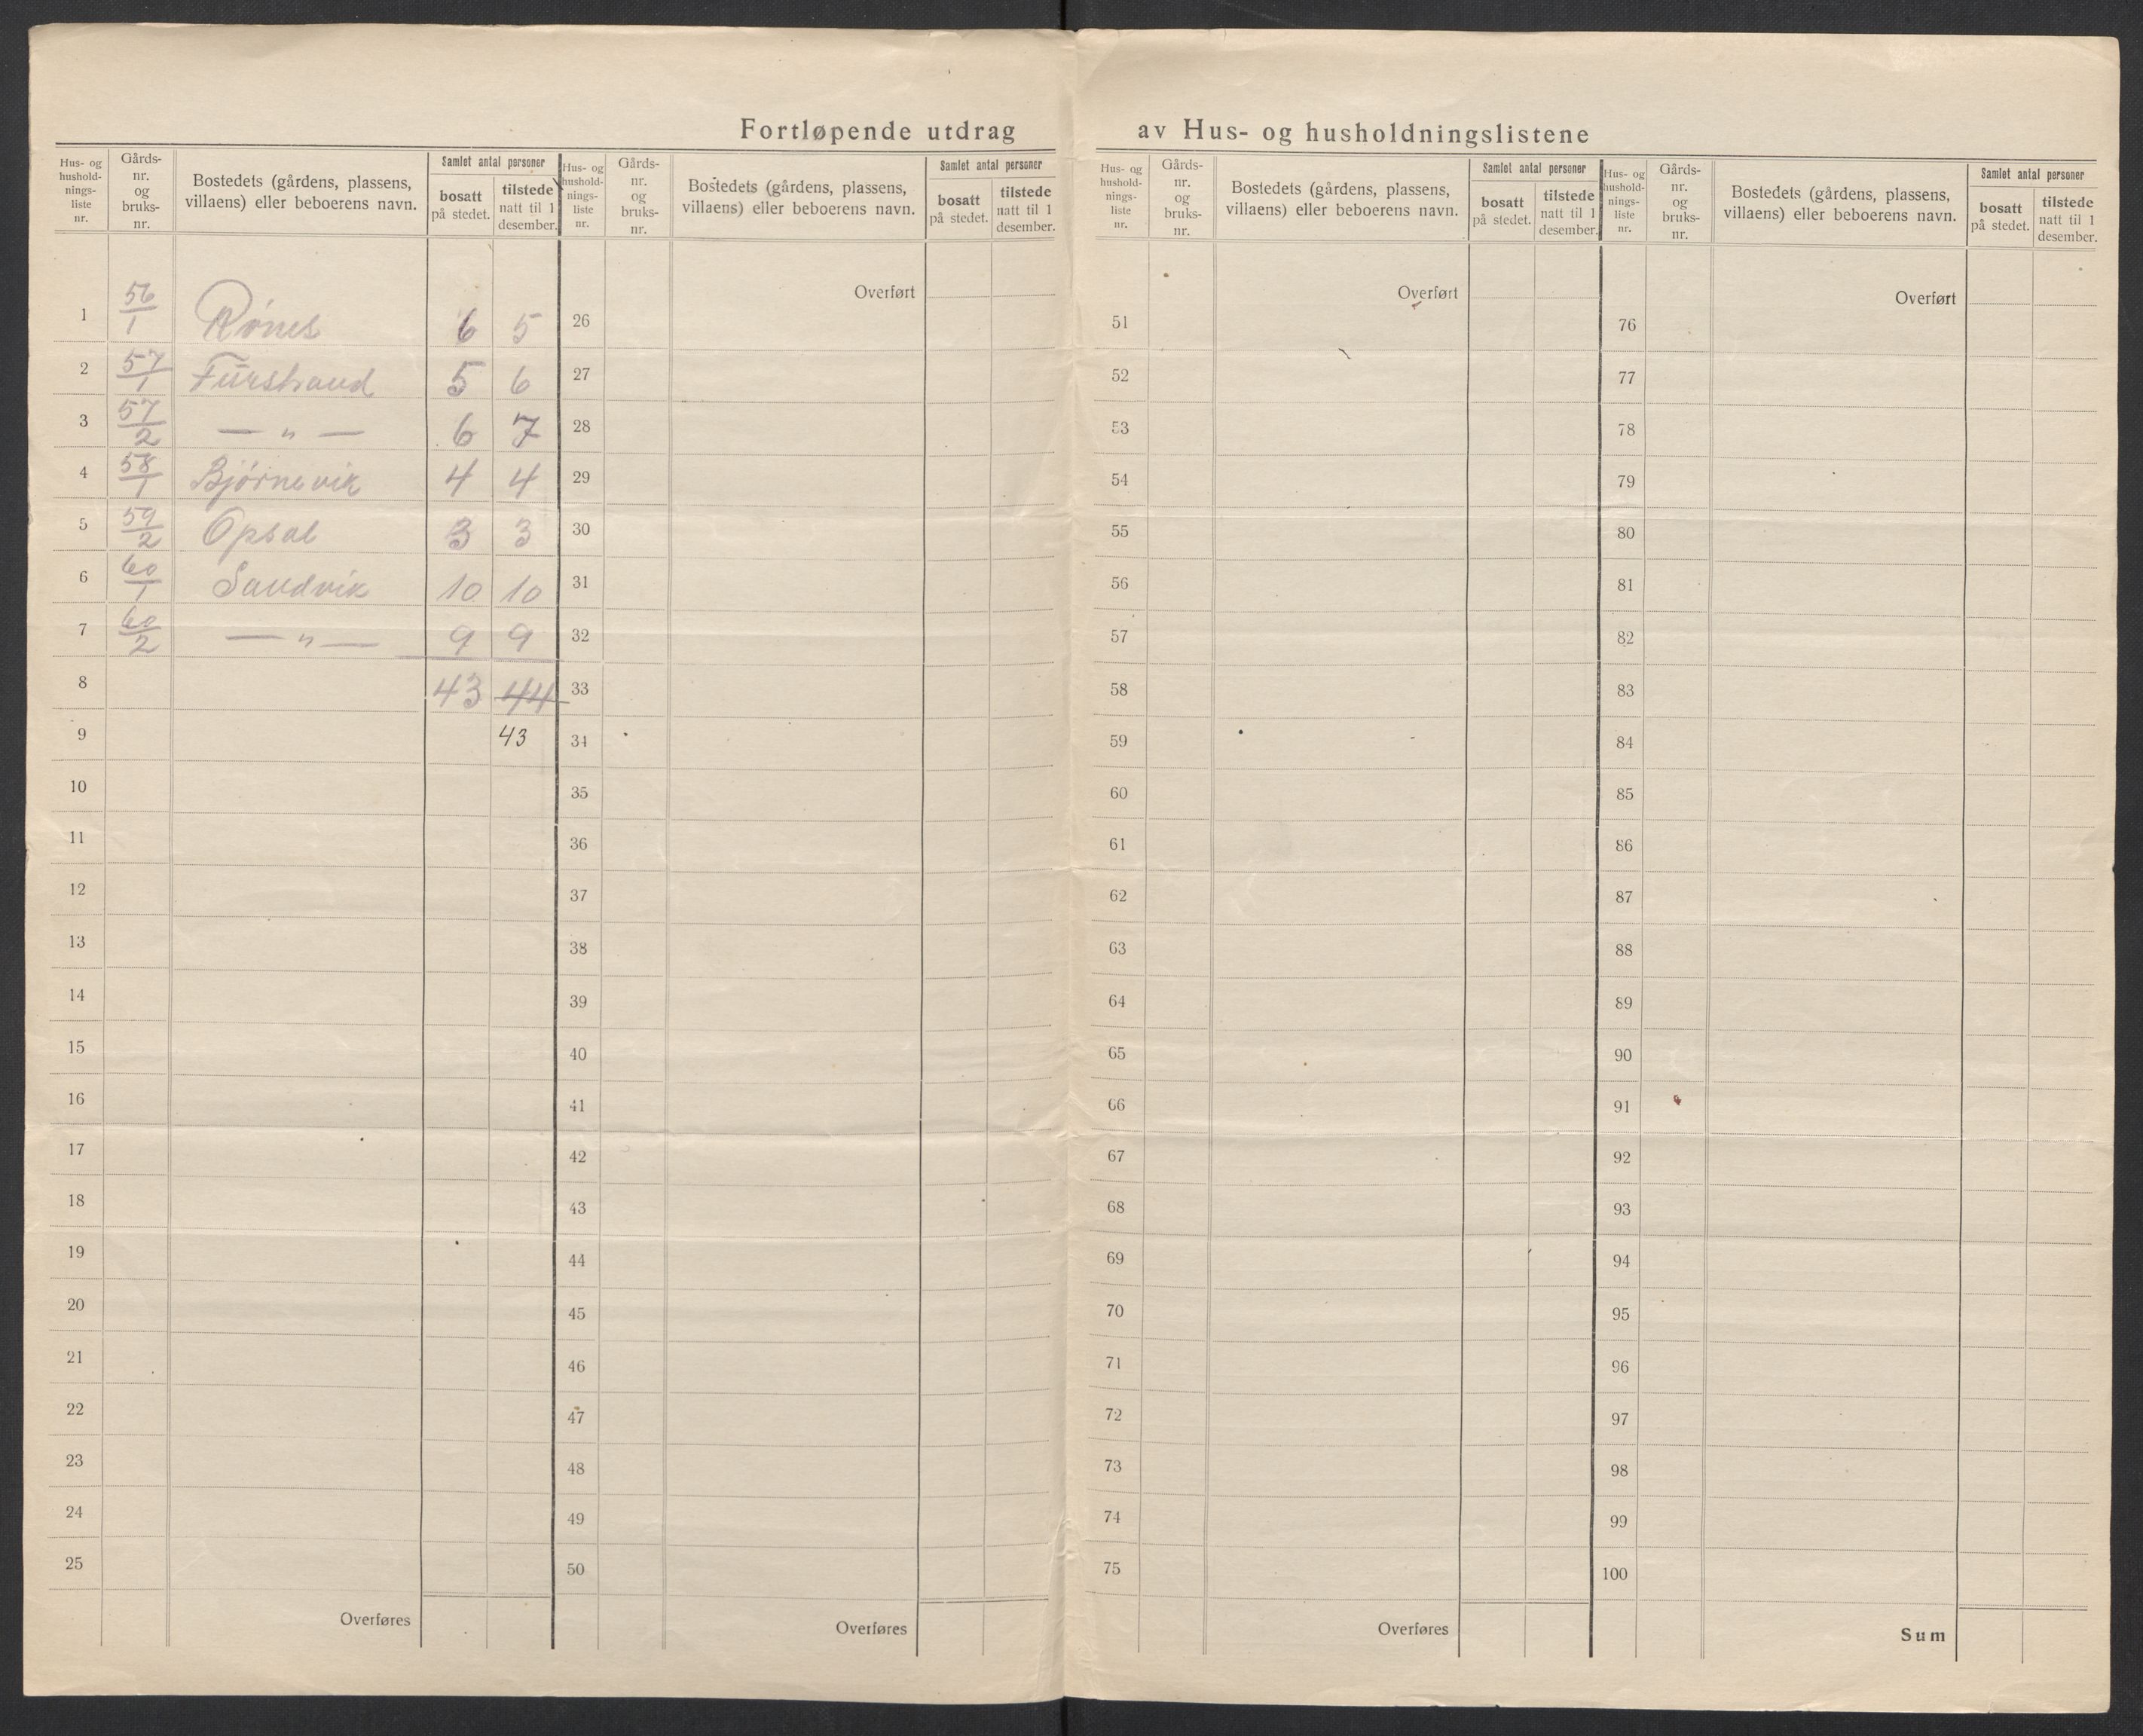 Fortløpende utdrag av Hus- og husholdningslistene
Hus- og husholdnings-liste nr. Gårds-nr. og bruks-nr. Bostedets (gårdens, plassens, villaens) eller beboerens navn. Samlet antal personer bosatt på stedet. tilstede natt til 1 desember.
1 56/1 Rönes 6 5
2 57/1 Furstrand 5 6
3 57/2 — „ — 6 7
4 58/1 Bjørnevik 4 4
5 59/2 Opsal 3 3
6 60/1 Sandvik 10 10
7 60/2 — „ — 9 9
8 43 44
9 43
10
11
12
13
14
15
16
17
18
19
20
21
22
23
24
25
Overføres
Hus- og husholdnings-liste nr. Gårds-nr. og bruks-nr. Bostedets (gårdens, plassens, villaens) eller beboerens navn. Samlet antal personer bosatt på stedet. tilstede natt til 1 desember.
Overført
26
27
28
29
30
31
32
33
34
35
36
37
38
39
40
41
42
43
44
45
46
47
48
49
50
Overføres
Hus- og husholdnings-liste nr. Gårds-nr. og bruks-nr. Bostedets (gårdens, plassens, villaens) eller beboerens navn. Samlet antal personer bosatt på stedet. tilstede natt til 1 desember.
Overført
51
52
53
54
55
56
57
58
59
60
61
62
63
64
65
66
67
68
69
70
71
72
73
74
75
Overføres
Hus- og husholdnings-liste nr. Gårds-nr. og bruks-nr. Bostedets (gårdens, plassens, villaens) eller beboerens navn. Samlet antal personer bosatt på stedet. tilstede natt til 1 desember.
Overført
76
77
78
79
80
81
82
83
84
85
86
87
88
89
90
91
92
93
94
95
96
97
98
99
100
Sum